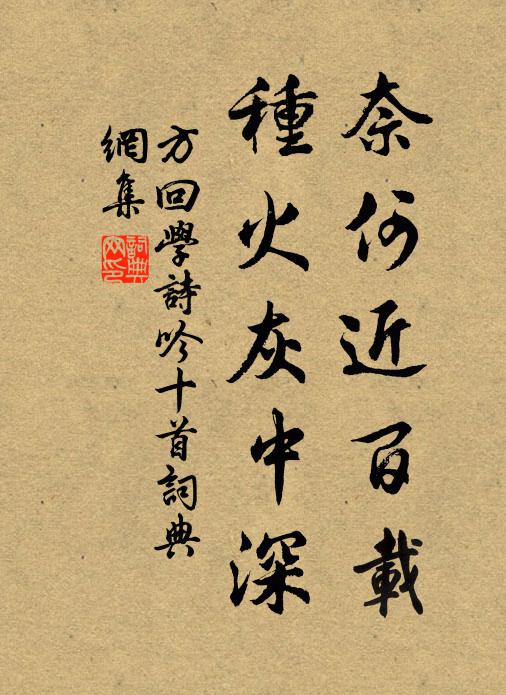 奈何近百載
種火灰中深
方回學詩吟十首詞典
網集
詞典
网印